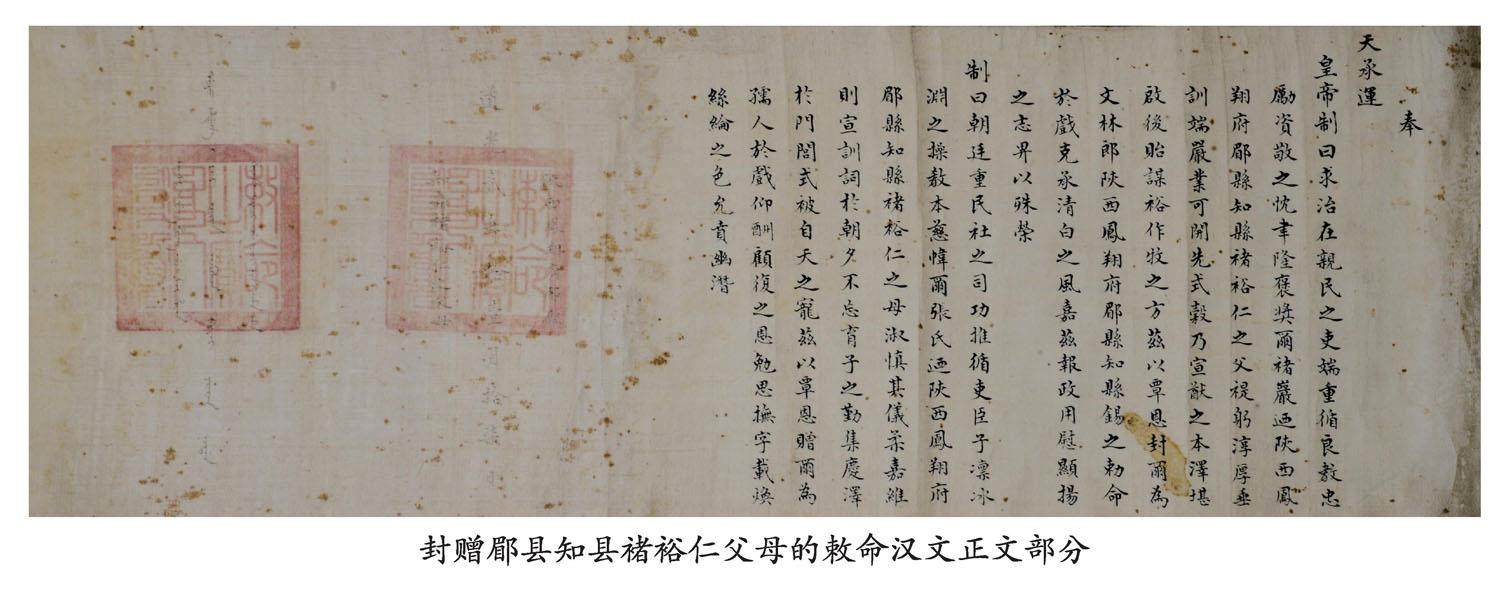 奉
天承運
皇帝制曰求治在親民之吏端重循良教忠
勵資敬之忱聿隆褒奬爾褚巖迺陝西鳳
翔府郿縣知縣褚裕仁之父禔躬淳厚垂
訓端嚴業可開先式榖乃宣猷之本澤堪
啟後貽謀裕作牧之方茲以覃恩封爾為
文林郎陝西鳳翔府郿縣知縣錫之勅命
於戲克承清白之風嘉茲報政用慰顯揚
之志畀以殊榮
制曰朝廷重民社之司功推循吏臣子凜冰
淵之操教本慈幃爾張氏迺陝西鳳翔府
郿縣知縣褚裕仁之母淑慎其儀柔嘉維
則宣訓詞於朝夕不忘育子之勤集慶澤
於門閭式被自天之寵茲以覃恩贈爾為
孺人於戲仰酬顧復之恩勉思撫字載煥
絲綸之色允賁幽潛
封赠郿县知县褚裕仁父母的敕命汉文正文部分